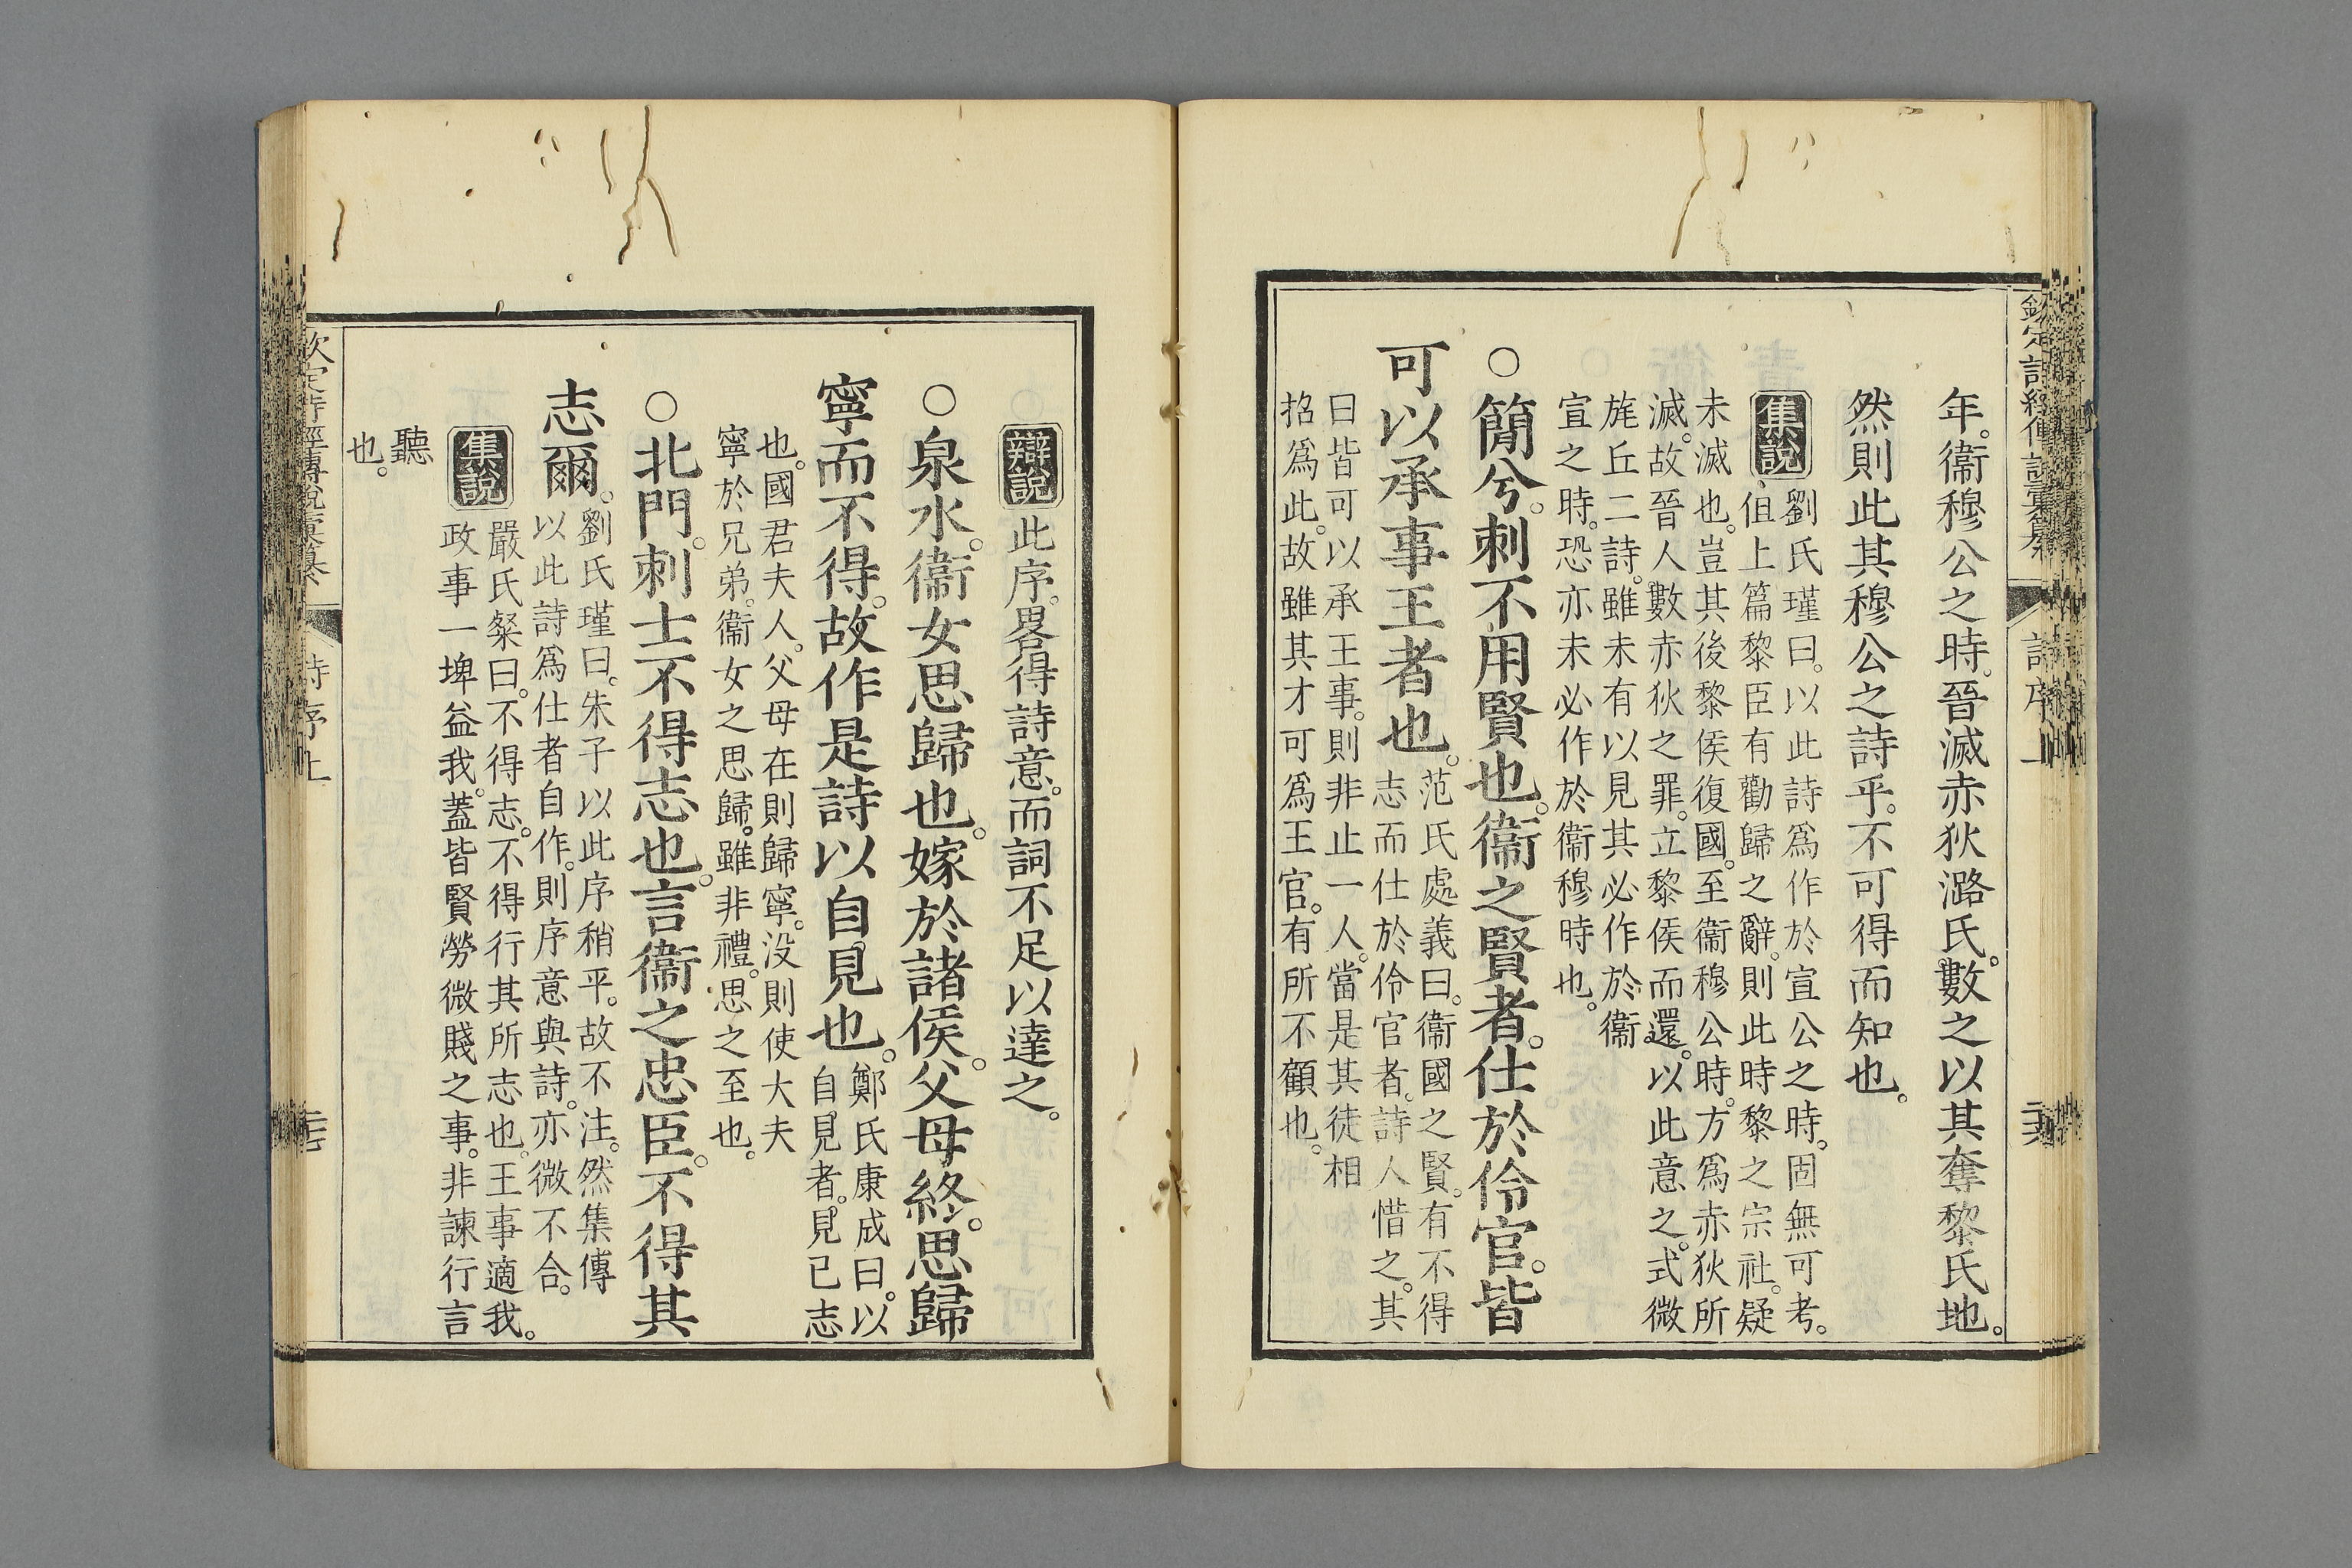 欽定詩經傳說彙纂 詩序上
年。衞穆公之時。晉滅赤狄潞氏。數之以其奪黎氏地。
然則此其穆公之詩乎。不可得而知也。
集說
劉氏瑾曰。以此詩爲作於宣公之時。固無可考。
但上篇黎臣有勸歸之辭。則此時黎之宗社。疑
未滅也。豈其後黎侯復國。至衞穆公時。方爲赤狄所
滅。故晉人數赤狄之罪。立黎侯而還。以此意之。式微
旄丘二詩。雖未有以見其必作於衞
宣之時。恐亦未必作於衞穆時也。
○簡兮。刺不用賢也。衞之賢者。仕於伶官。皆
可以承事王者也。
范氏處義曰。衞國之賢。有不得
志而仕於伶官者。詩人惜之。其
曰皆可以承王事。則非止一人。當是其徒相
招爲此。故雖其才可爲王官。有所不顧也。
辯說
此序。畧得詩意。而詞不足以達之。
○泉水。衞女思歸也。嫁於諸侯。父母終。思歸
寧而不得。故作是詩以自見也。
鄭氏康成曰。以
自見者。見已志
也。國君夫人。父母在則歸寧。没則使大夫
寧於兄弟。衞女之思歸。雖非禮。思之至也。
○北門。刺士不得志也。言衞之忠臣。不得其
志爾。
劉氏瑾曰。朱子以此序稍平。故不注。然集傳
以此詩爲仕者自作。則序意與詩。亦微不合。
集說
嚴氏粲曰。不得志。不得行其所志也。王事適我。
政事一埤益我。蓋皆賢勞微賤之事。非諫行言
聽
也。
欽定詩經傳說彙纂 詩序上